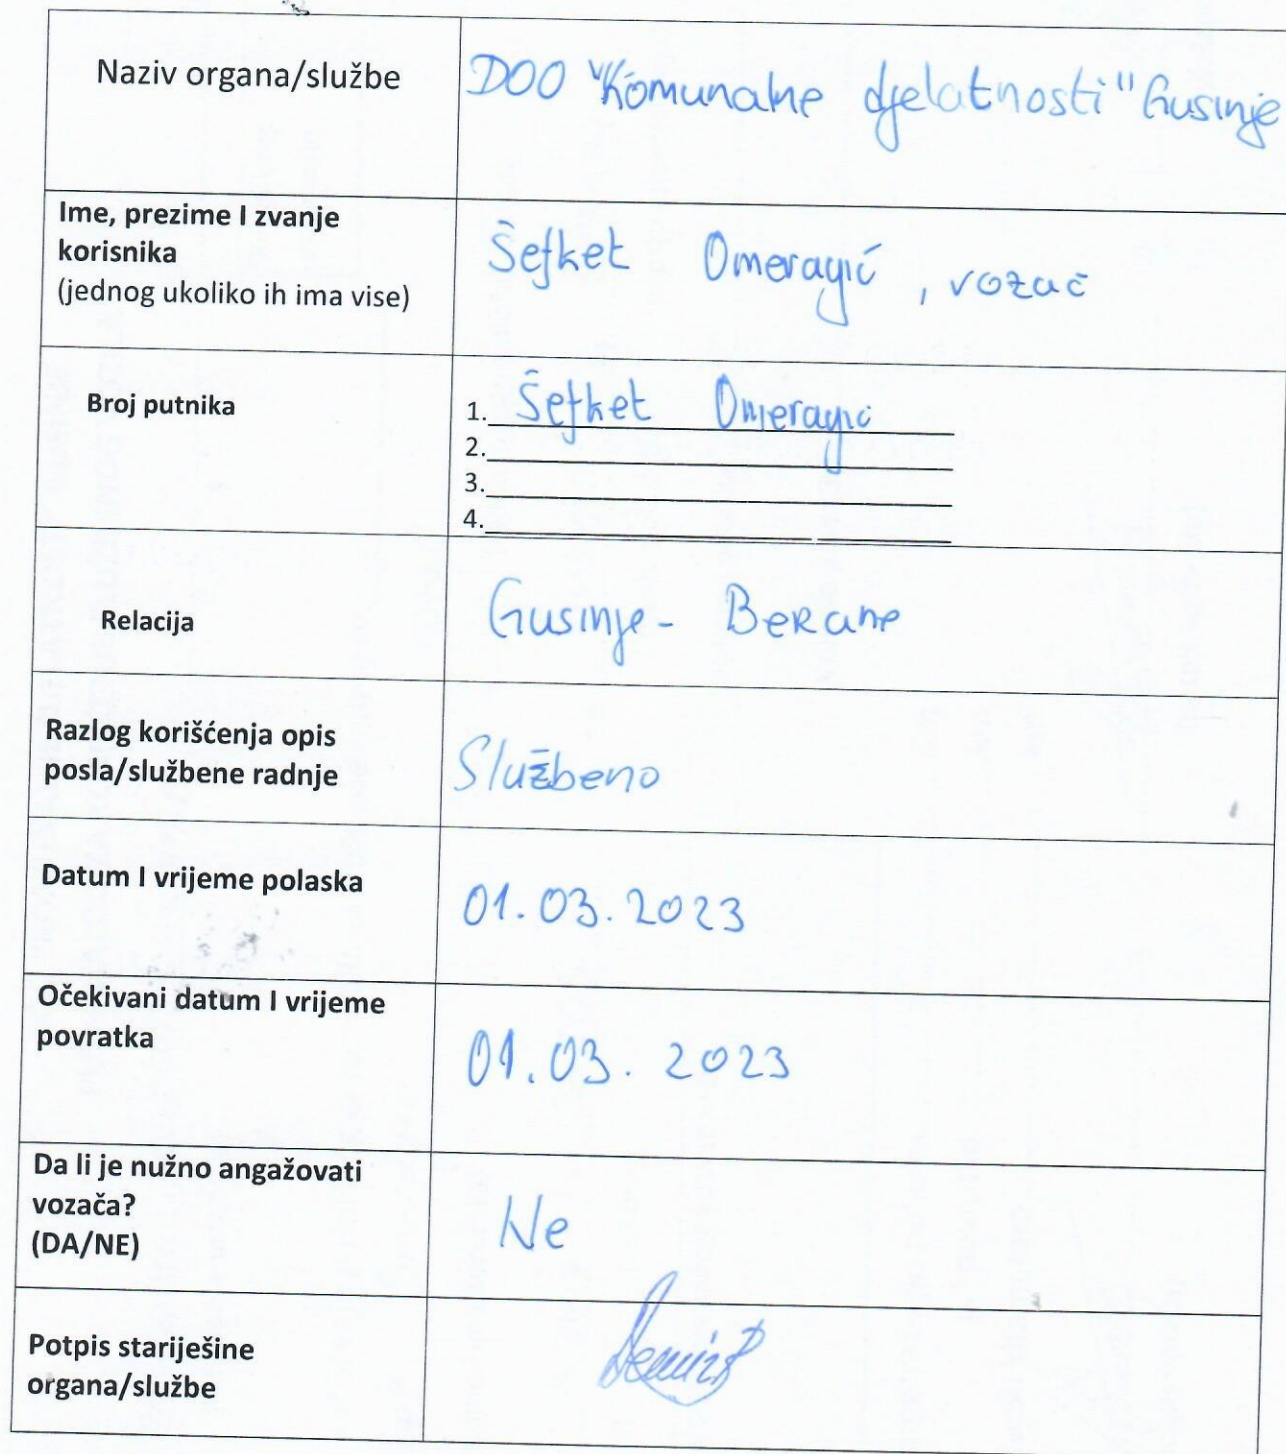 Naziv organa/službe
DOO "Komunalne djelatnosti" Gusinje
Ime, prezime I zvanje
korisnika
(jednog ukoliko ih ima vise)
Šefket Omeragić, vozač
Broj putnika
1. Šefket Omeragić
2.
3.
4.
Relacija
Gusinje - Berane
Razlog korišćenja opis
posla/službene radnje
Službeno
Datum I vrijeme polaska
01.03.2023
Očekivani datum I vrijeme
povratka
01.03.2023
Da li je nužno angažovati
vozača?
(DA/NE)
Ne
Potpis stariješine
organa/službe